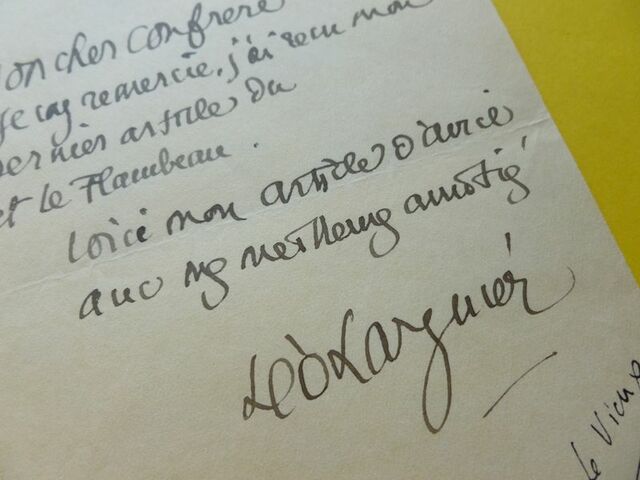 on cher confrère
Je vous remercie, j'ai reçu mon
ernier article du
et le Flambeau.
Voici mon article d'avril
avec mes meilleures amitiés
Léo Larguier
le Vieux